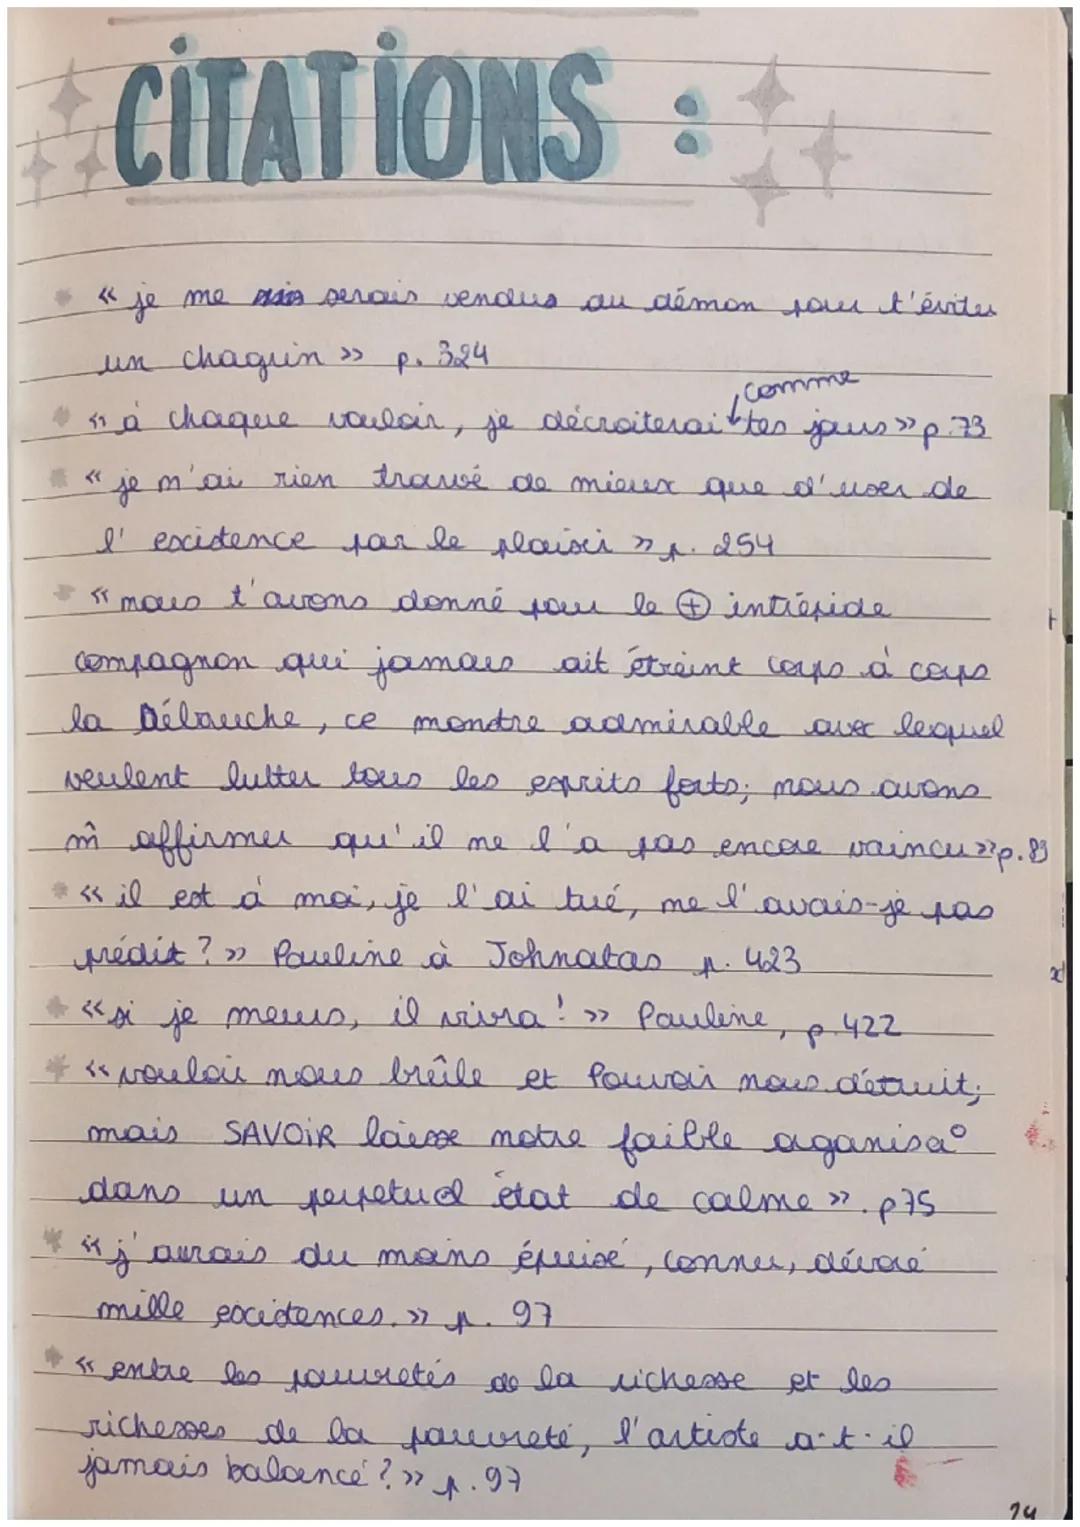 CITATIONS :
« je me serais vendus au démon pour t'éviter
un chagrin » p. 324
comme
« à chaque vouloir, je décroiterai tes jours » p.73
« je n'ai rien trouvé de mieux que d'user de
l'existence par le plaisir » p. 254
« nous t'avons donné pour le ⊕ intrépide
compagnon qui jamais ait étreint corps à corps
la Débauche, ce monstre admirable avec lequel
veulent lutter tous les esprits forts; nous avons
m̂ affirmer qu'il ne l'a pas encore vaincu » p. 89
« il est à moi, je l'ai tué, ne l'avais-je pas
prédit ? » Pauline à Johnatas p. 423
« si je meurs, il vivra ! » Pauline, p.422
« vouloir nous brûle et Pouvoir nous détruit;
mais SAVOIR laisse notre faible organisa°
dans un perpetuel état de calme ». p75
« j'aurais du moins épuisé, connu, dévoré
mille existences. » p. 97
« entre les pauvretés de la richesse et les
richesses de la pauvreté, l'artiste a-t-il
jamais balancé ? » p. 97